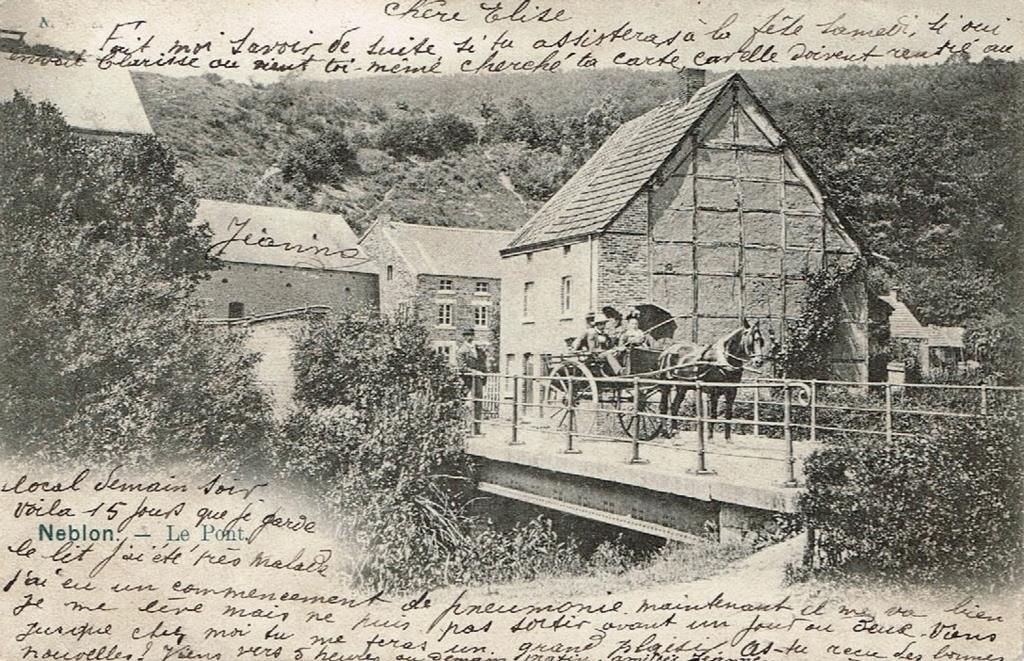 chère Elise
Fait moi savoir de suite si tu assisteras à la fête Samedi, si oui
envoit Clarisse ou vient toi-même cherché ta carte car elle doivent rentré au
Jeanne
local demain soir
voila 15 jours que je garde
Neblon. — Le Pont.
le lit j'ai été très malade
j'ai eu un commencement de pneumonie maintenant il me va bien
je me lève mais ne puis pas sortir avant un jour ou deux. Viens
jusque chez moi tu me feras un grand plaisir. As-tu reçu des bonnes
nouvelles? Viens vers 5 heures ou demain matin, amitiés Jeanne